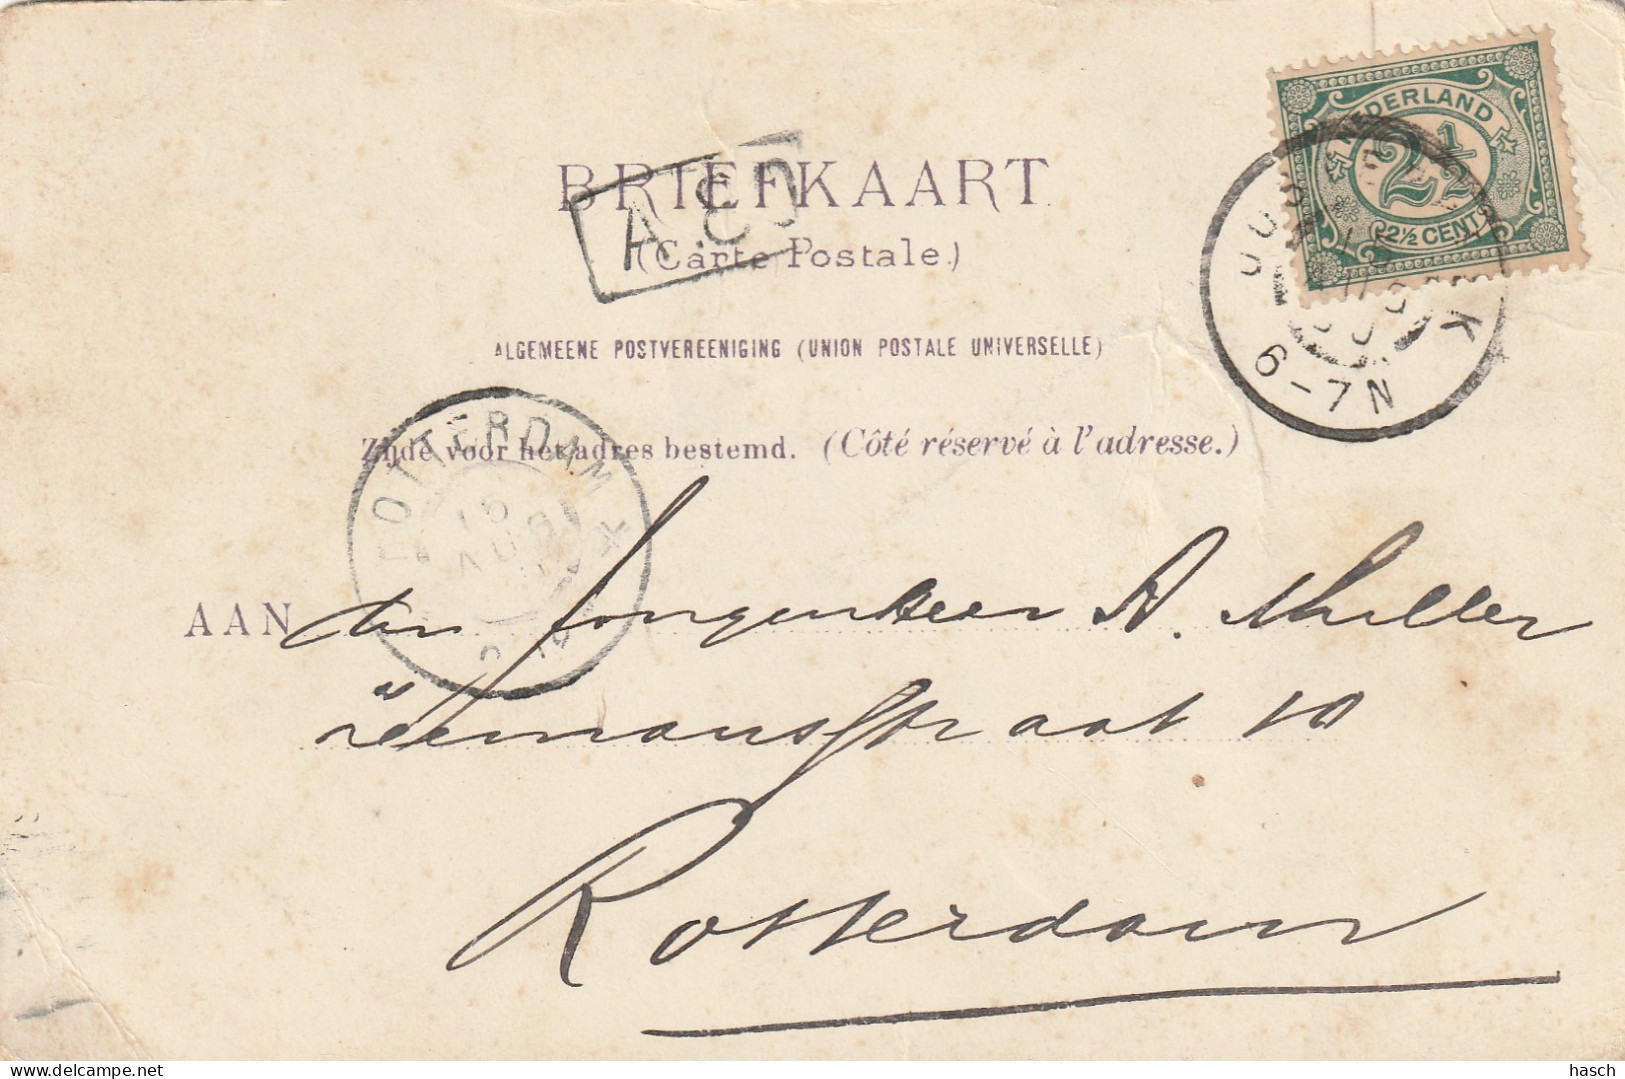 BRIEFKAART
(Carte Postale.)
ALGEMEENE POSTVEREENIGING (UNION POSTALE UNIVERSELLE)
Zijde voor het adres bestemd. (Côté réservé à l'adresse.)
NEDERLAND
2½
2½ CENT
6-7N
ROTTERDAM
AUG
AAN den Jongenheer A. Muller
straat 10
Rotterdam
hasch